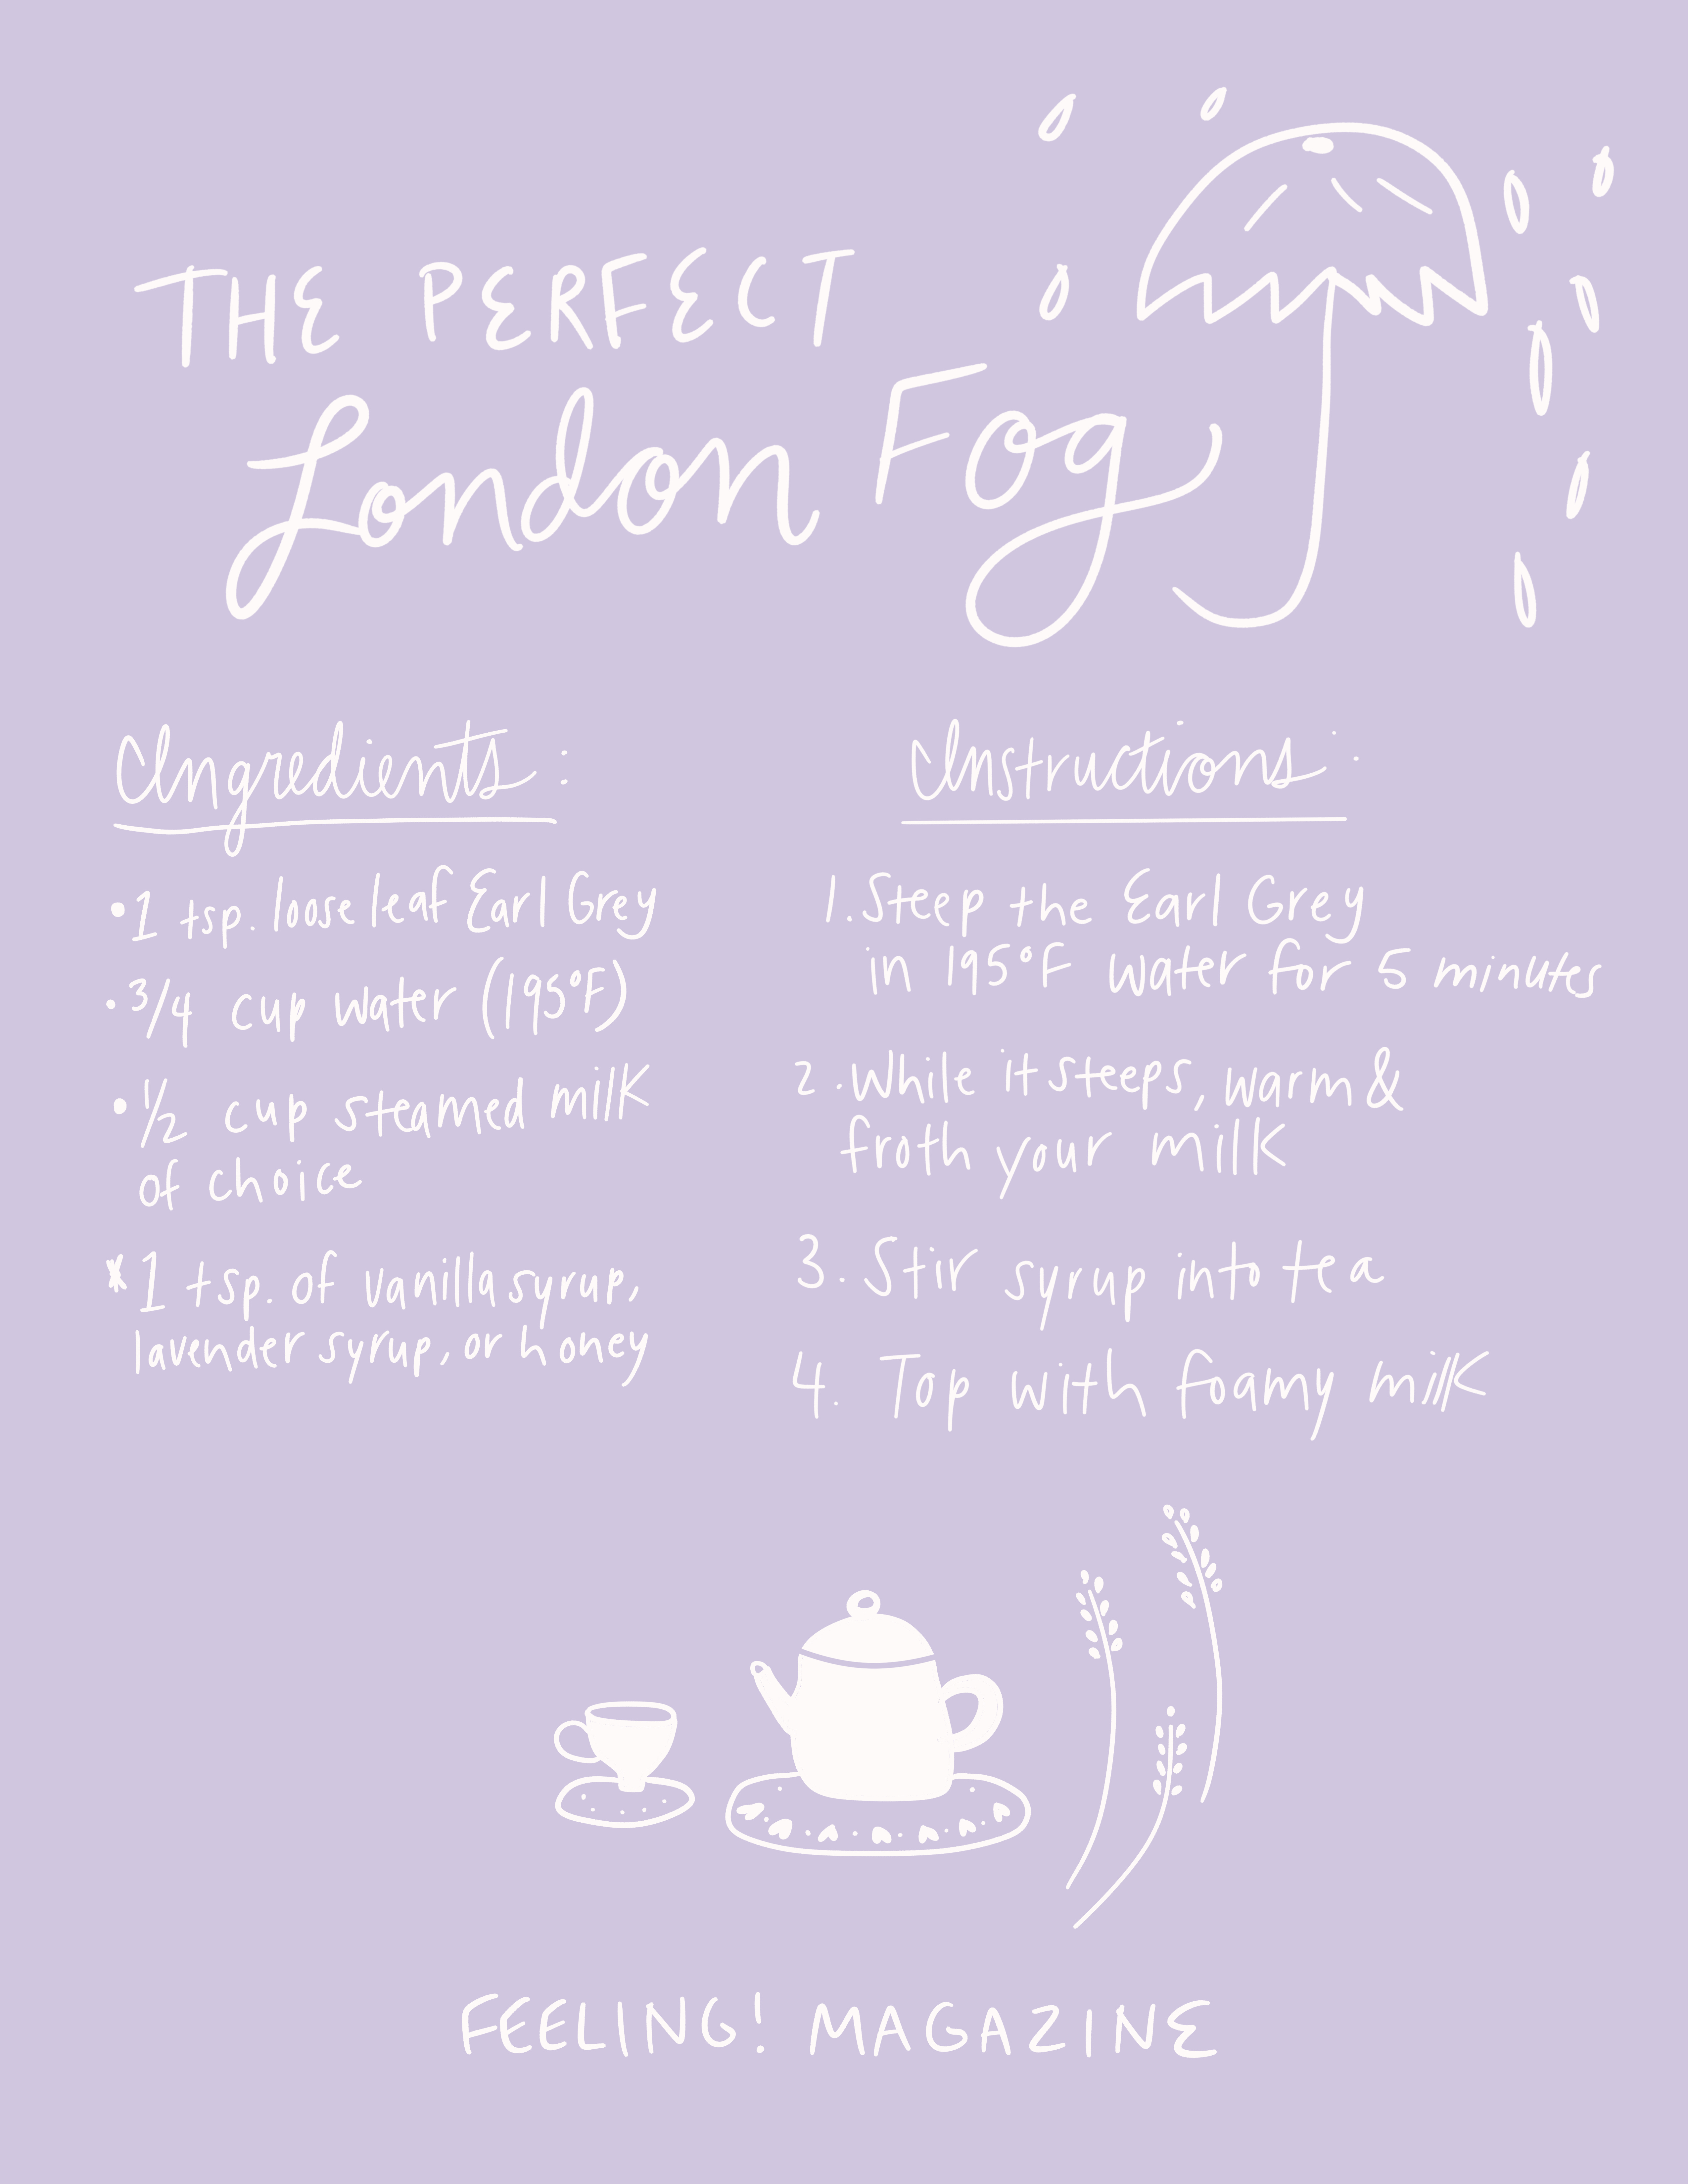 THE PERFECT
London Fog
Ingredients:
• 1 tsp. loose leaf Earl Grey
• 3/4 cup water (195°F)
• 1/2 cup steamed milk
of choice
* 1 tsp. of vanilla syrup,
lavender syrup, or honey
Instructions:
1. Steep the Earl Grey
in 195°F water for 5 minutes
2. While it steeps, warm &
froth your milk
3. Stir syrup into tea
4. Top with foamy milk
FEELING! MAGAZINE